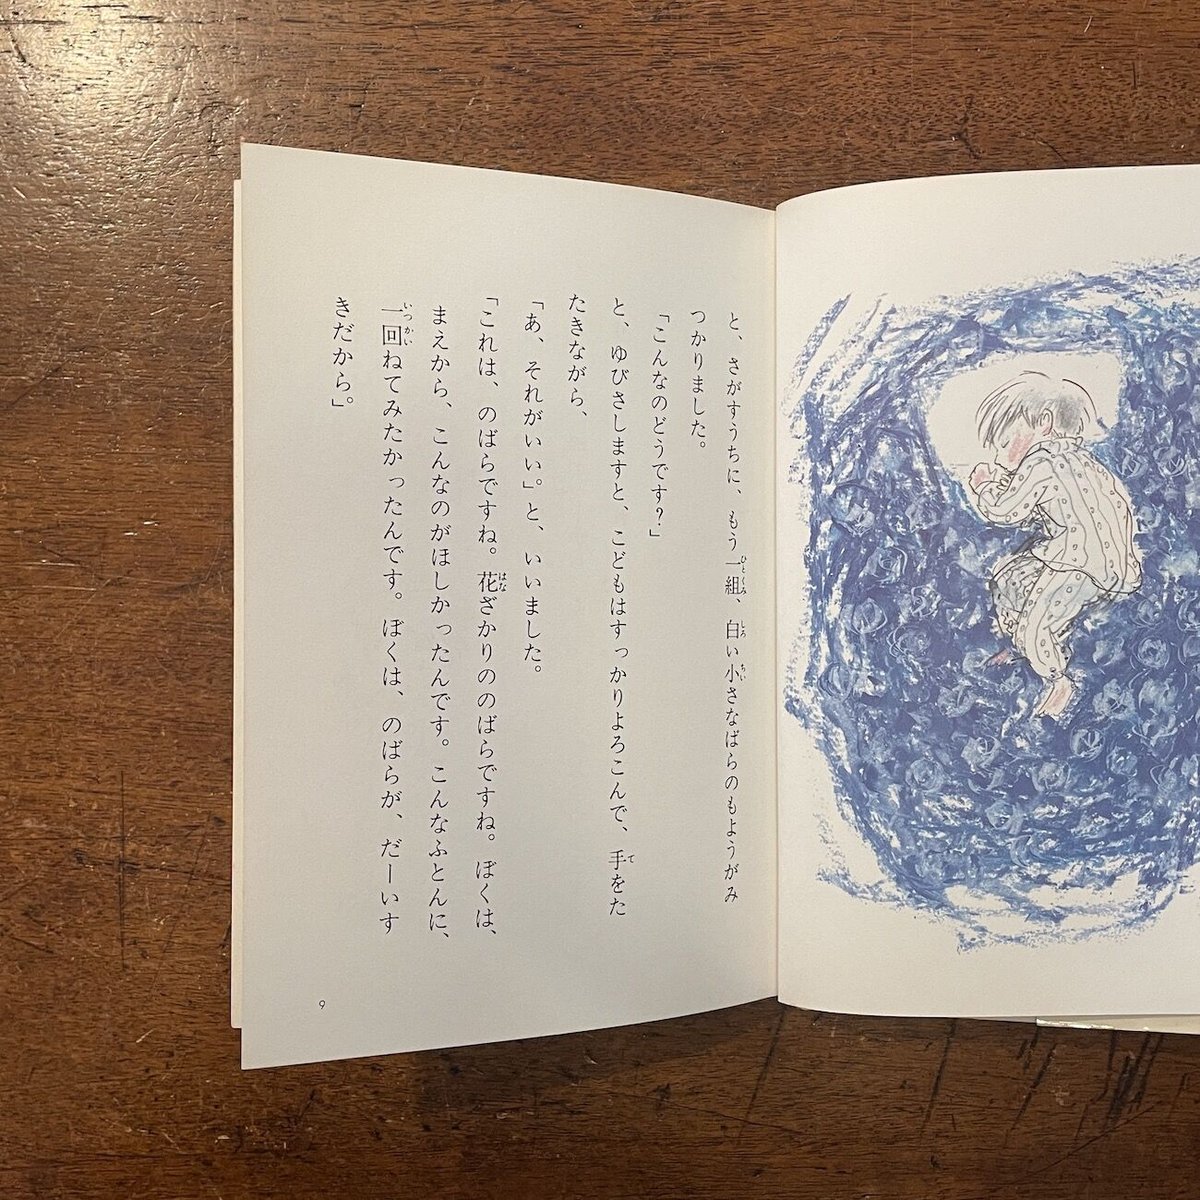 と、さがすうちに、もう一組、白い小さなばらのもようがみ
つかりました。
「こんなのどうです？」
と、ゆびさしますと、こどもはすっかりよろこんで、手をた
たきながら、
「あ、それがいい。」と、いいました。
「これは、のばらですね。花ざかりののばらですね。ぼくは、
まえから、こんなのがほしかったんです。こんなふとんに、
一回ねてみたかったんです。ぼくは、のばらが、だーいす
きだから。」
9